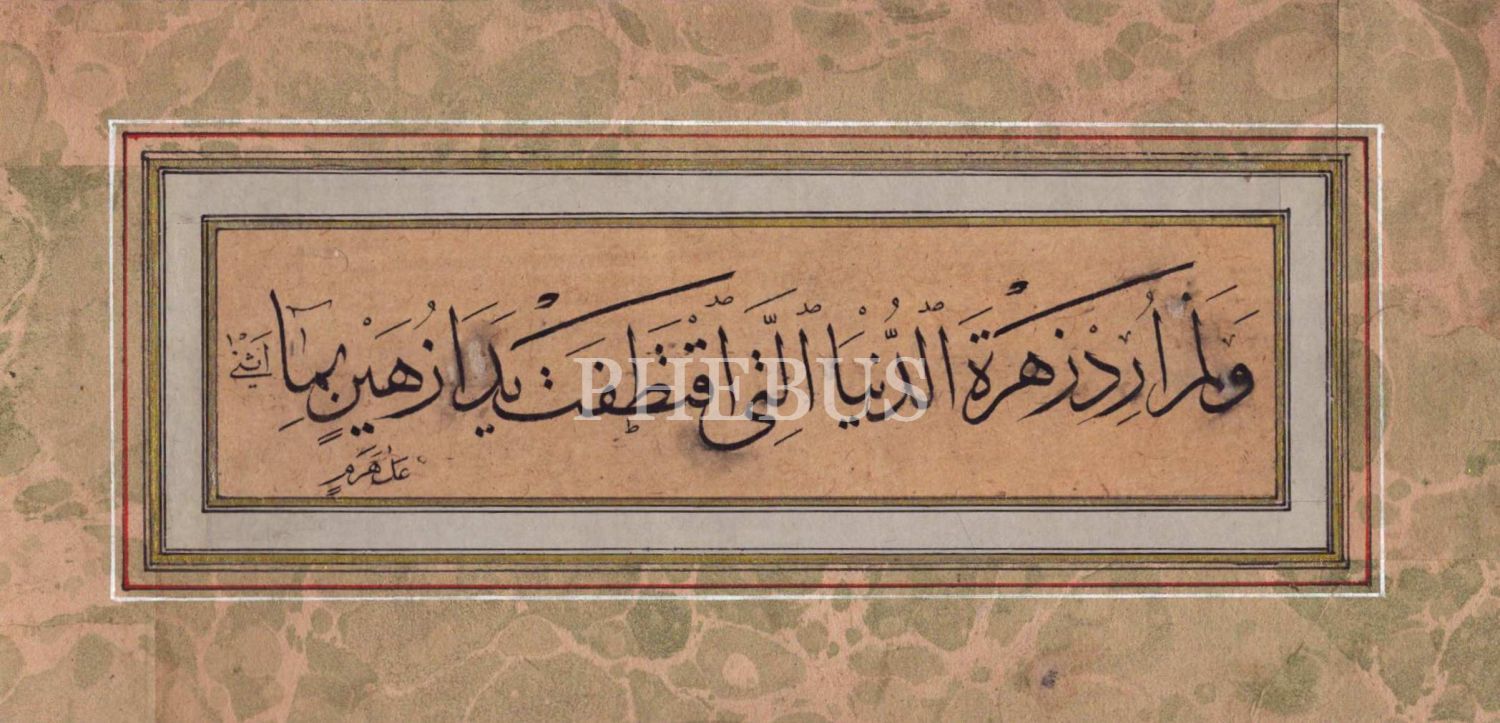 وَلَمْ اُرِدْ زَهْرَةَ الدُّنْيَا الَّتِى اقْتَطَفَتْ يَدَا زُهَيْرٍ بِمَا اَثْنٰى
عَلٰى هَرَمٍ
PHEBUS